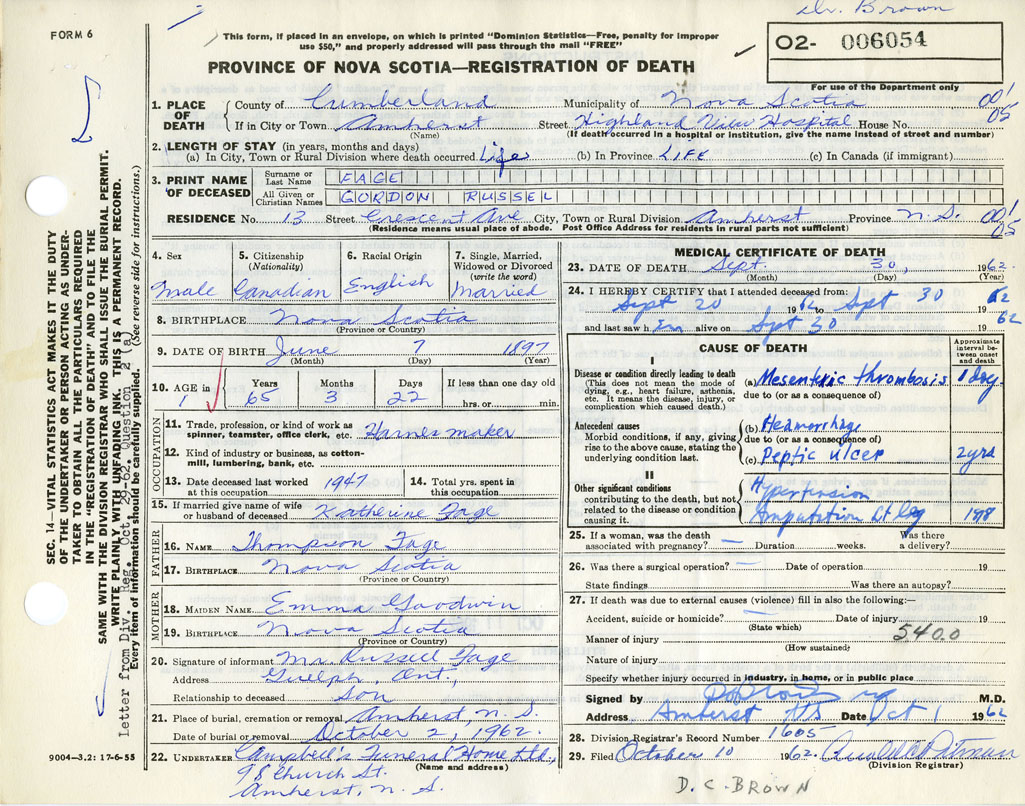 Dr. Brown
FORM 6
This form, if placed in an envelope, on which is printed "Dominion Statistics—Free, penalty for improper
use $50," and properly addressed will pass through the mail "FREE"
O2- 006054
PROVINCE OF NOVA SCOTIA—REGISTRATION OF DEATH
For use of the Department only
SEC. 14—VITAL STATISTICS ACT MAKES IT THE DUTY
OF THE UNDERTAKER OR PERSON ACTING AS UNDER-
TAKER TO OBTAIN ALL THE PARTICULARS REQUIRED
IN THE "REGISTRATION OF DEATH" AND TO FILE THE
SAME WITH THE DIVISION REGISTRAR WHO SHALL ISSUE THE BURIAL PERMIT.
WRITE PLAINLY WITH UNFADING INK. THIS IS A PERMANENT RECORD.
Letter from Div. Reg. Oct 29-62. Question 2 (a)
Every item of information should be carefully supplied. (See reverse side for instructions.)
1. PLACE OF DEATH County of Cumberland Municipality of Nova Scotia 001
If in City or Town Amherst Street Highland View Hospital House No. 05
(Name) (If death occurred in a hospital or institution, give the name instead of street and number)
2. LENGTH OF STAY (in years, months and days)
(a) In City, Town or Rural Division where death occurred Life (b) In Province LIFE (c) In Canada (if immigrant)
3. PRINT NAME OF DECEASED Surname or Last Name FAGE
All Given or Christian Names GORDON RUSSEL
RESIDENCE No. 13 Street Crescent Ave City, Town or Rural Division Amherst Province N.S. 001
(Residence means usual place of abode. Post Office Address for residents in rural parts not sufficient) 05
4. Sex Male
5. Citizenship (Nationality) Canadian
6. Racial Origin English
7. Single, Married, Widowed or Divorced (write the word) Married
8. BIRTHPLACE Nova Scotia
(Province or Country)
9. DATE OF BIRTH June 7 1897
(Month) (Day) (Year)
10. AGE in Years Months Days If less than one day old
1 65 3 22 hrs. or min.
OCCUPATION
11. Trade, profession, or kind of work as
spinner, teamster, office clerk, etc. Harness maker
12. Kind of industry or business, as cotton-
mill, lumbering, bank, etc.
13. Date deceased last worked at this occupation 1947 14. Total yrs. spent in this occupation
15. If married give name of wife or husband of deceased Katherine Fage
FATHER
16. NAME Thompson Fage
17. BIRTHPLACE Nova Scotia
(Province or Country)
MOTHER
18. MAIDEN NAME Emma Goodwin
19. BIRTHPLACE Nova Scotia
(Province or Country)
20. Signature of informant Mr. Russell Fage
Address Guelph, Ont.,
Relationship to deceased Son
21. Place of burial, cremation or removal Amherst, N.S.
Date of burial or removal October 2, 1962.
22. UNDERTAKER Campbell's Funeral Home Ltd.,
(Name and address)
98 Church St.
Amherst, N.S.
9004—3,2: 17-6-55
MEDICAL CERTIFICATE OF DEATH
23. DATE OF DEATH Sept. 30, 1962
(Month) (Day) (Year)
24. I HEREBY CERTIFY that I attended deceased from:
Sept 20 1962 to Sept 30 1962
and last saw h Em alive on Sept 30 1962
CAUSE OF DEATH
Approximate interval between onset and death
I
Disease or condition directly leading to death
(This does not mean the mode of
dying, e.g., heart failure, asthenia,
etc. It means the disease, injury, or
complication which caused death.)
(a) Mesenteric thrombosis 1 day
due to (or as a consequence of)
Antecedent causes
Morbid conditions, if any, giving
rise to the above cause, stating the
underlying condition last.
(b) Hemorrhage
due to (or as a consequence of)
(c) Peptic ulcer 2 yrs
II
Other significant conditions
contributing to the death, but not
related to the disease or condition
causing it.
Hypertension
Amputation Lt leg
25. If a woman, was the death associated with pregnancy? — Duration weeks. Was there a delivery?
26. Was there a surgical operation? — Date of operation 19
State findings Was there an autopsy?
27. If death was due to external causes (violence) fill in also the following:—
Accident, suicide or homicide? Date of injury 19
(State which)
Manner of injury 540.0
(How sustained)
Nature of injury
Specify whether injury occurred in industry, in home, or in public place
Signed by M.D.
Address Amherst NS Date Oct 1 1962
28. Division Registrar's Record Number 1605
29. Filed October 10 1962
(Division Registrar)
D. C. BROWN